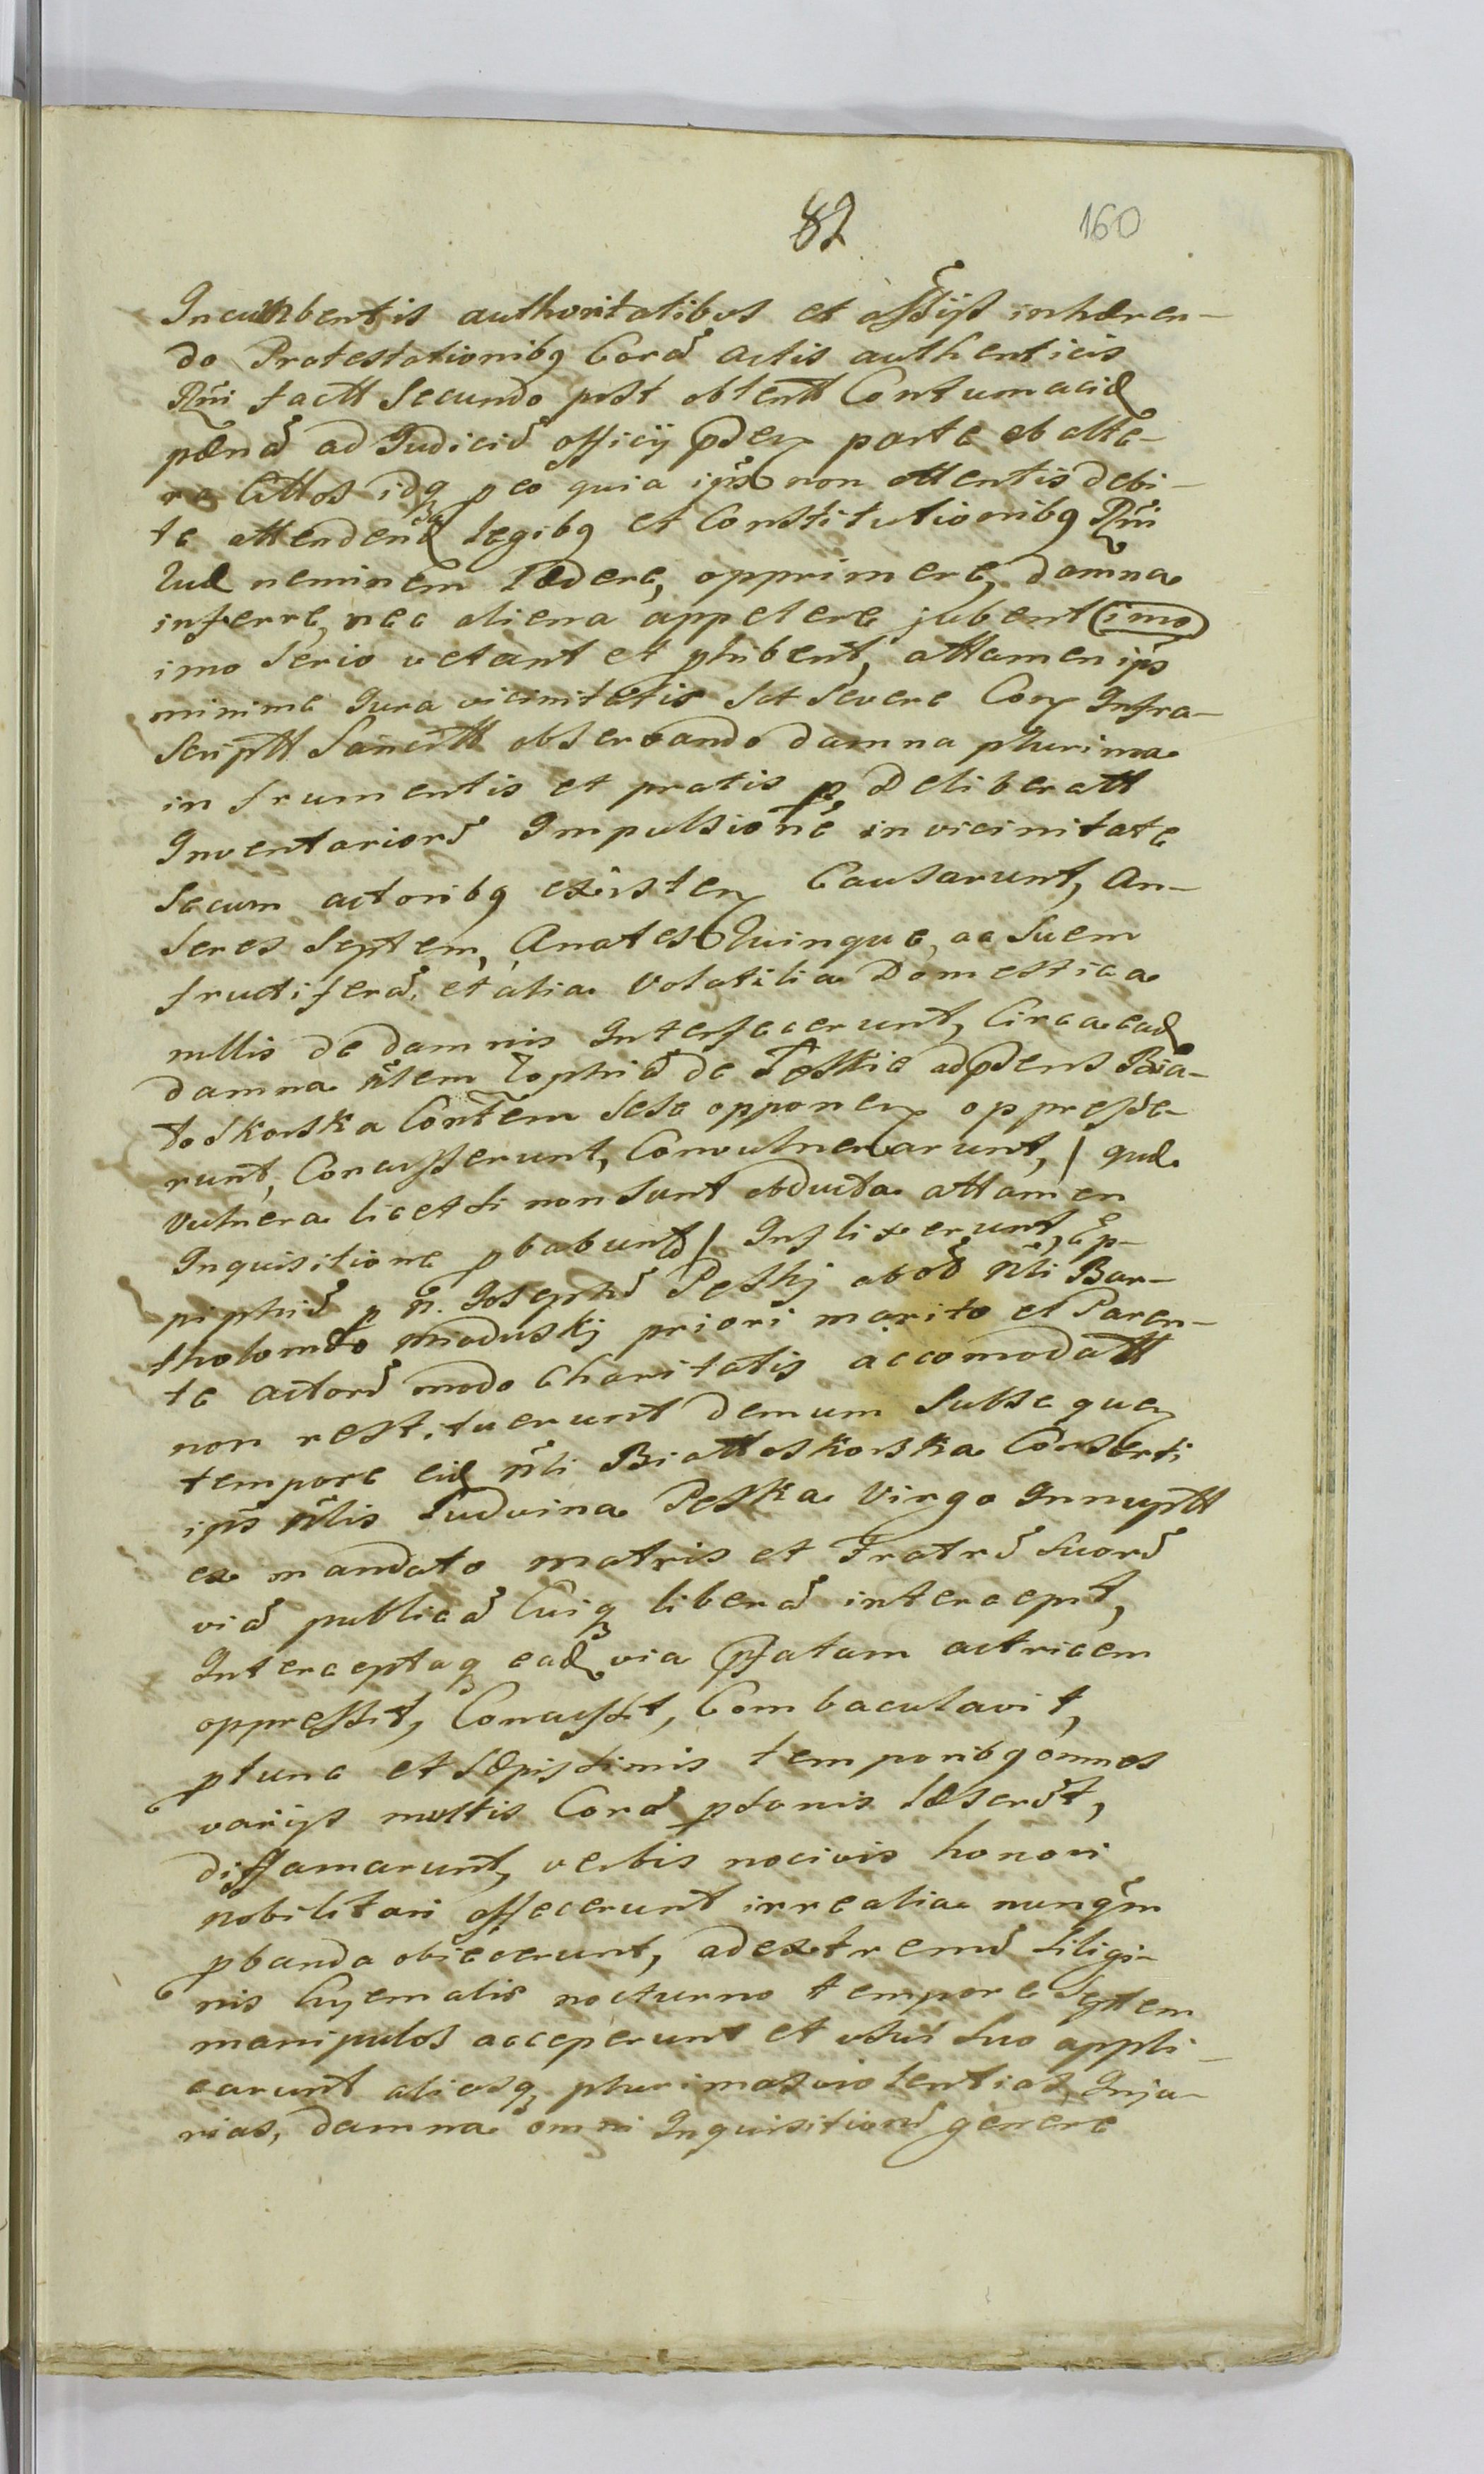 82 160
Incumbentis authoritatibus et offijs inhæren-
do Protestationibq Corã actis authenticis
Rni factt Secundo post obtentt Contumaciæ
pænã ad Judiciũ officij pden parte ab alte-
ra Cittos idq p eo quia ipsi non attentis debi-
te attendend legibq et Constitutionibq Rni
quæ neminem lædere, opprimere, damna
inferre, nec aliena appetere jubent (imo)
imo Serio vetant et phibent, attamen ips
minime Jura vicinitatis Sat Severe Con Infra-
Scriptt Sancitt observando damna plurima
in frumentis et pratis p Deliberatt
Inventariorũ Impulsione in vicinitate
Secum actoribq existen Causarunt, An-
Seres Septem, Anates Quinque, ac Suem
fructiferã, et alia Volatilia Domestica
nullis de damnis Interfecerunt, Circa ead
damna Nlem Zophiã de Peskie adpdens Bia-
toskorska Contem Sese opponen oppresse-
runt, Concusserunt, Convulnerarunt, / quæ
Vulnera licet si non sunt obducta attamen
Inquisitione pbabunt / Inflixerunt, Ep-
piphiũ p N. Josephũ Peskj ab Nli Bar-
tholomæo Miaduskj priori marito et Paren-
te actorũ modo Charitatis accomodatt
non restituerunt demum Subsequen
tempore eid Nli Biattoskorska Consorti
ips Nlis Ludvina Peska Virgo Innuptt
ex mandato matris et Fratrũ Suorũ
viã publicã Cuiq liberã intercepit,
Interceptaq ead via pfatam actricem
oppressit, Concussit, Combaculavit,
ptunc et Sæpissimis temporibq omnes
varijs multis Corã psonis læserũt,
diffamarunt, verbis nocivis honori
nobilitari offecerunt irrealia nunqm
pbanda obiecerunt, ad extremũ Siligi-
nis hyemalis nocturno tempore Septem
manipulos acceperunt et usui Suo appli-
carunt aliasq plurimas violentias, Inju-
rias, damna omni Inquisitionũ genere